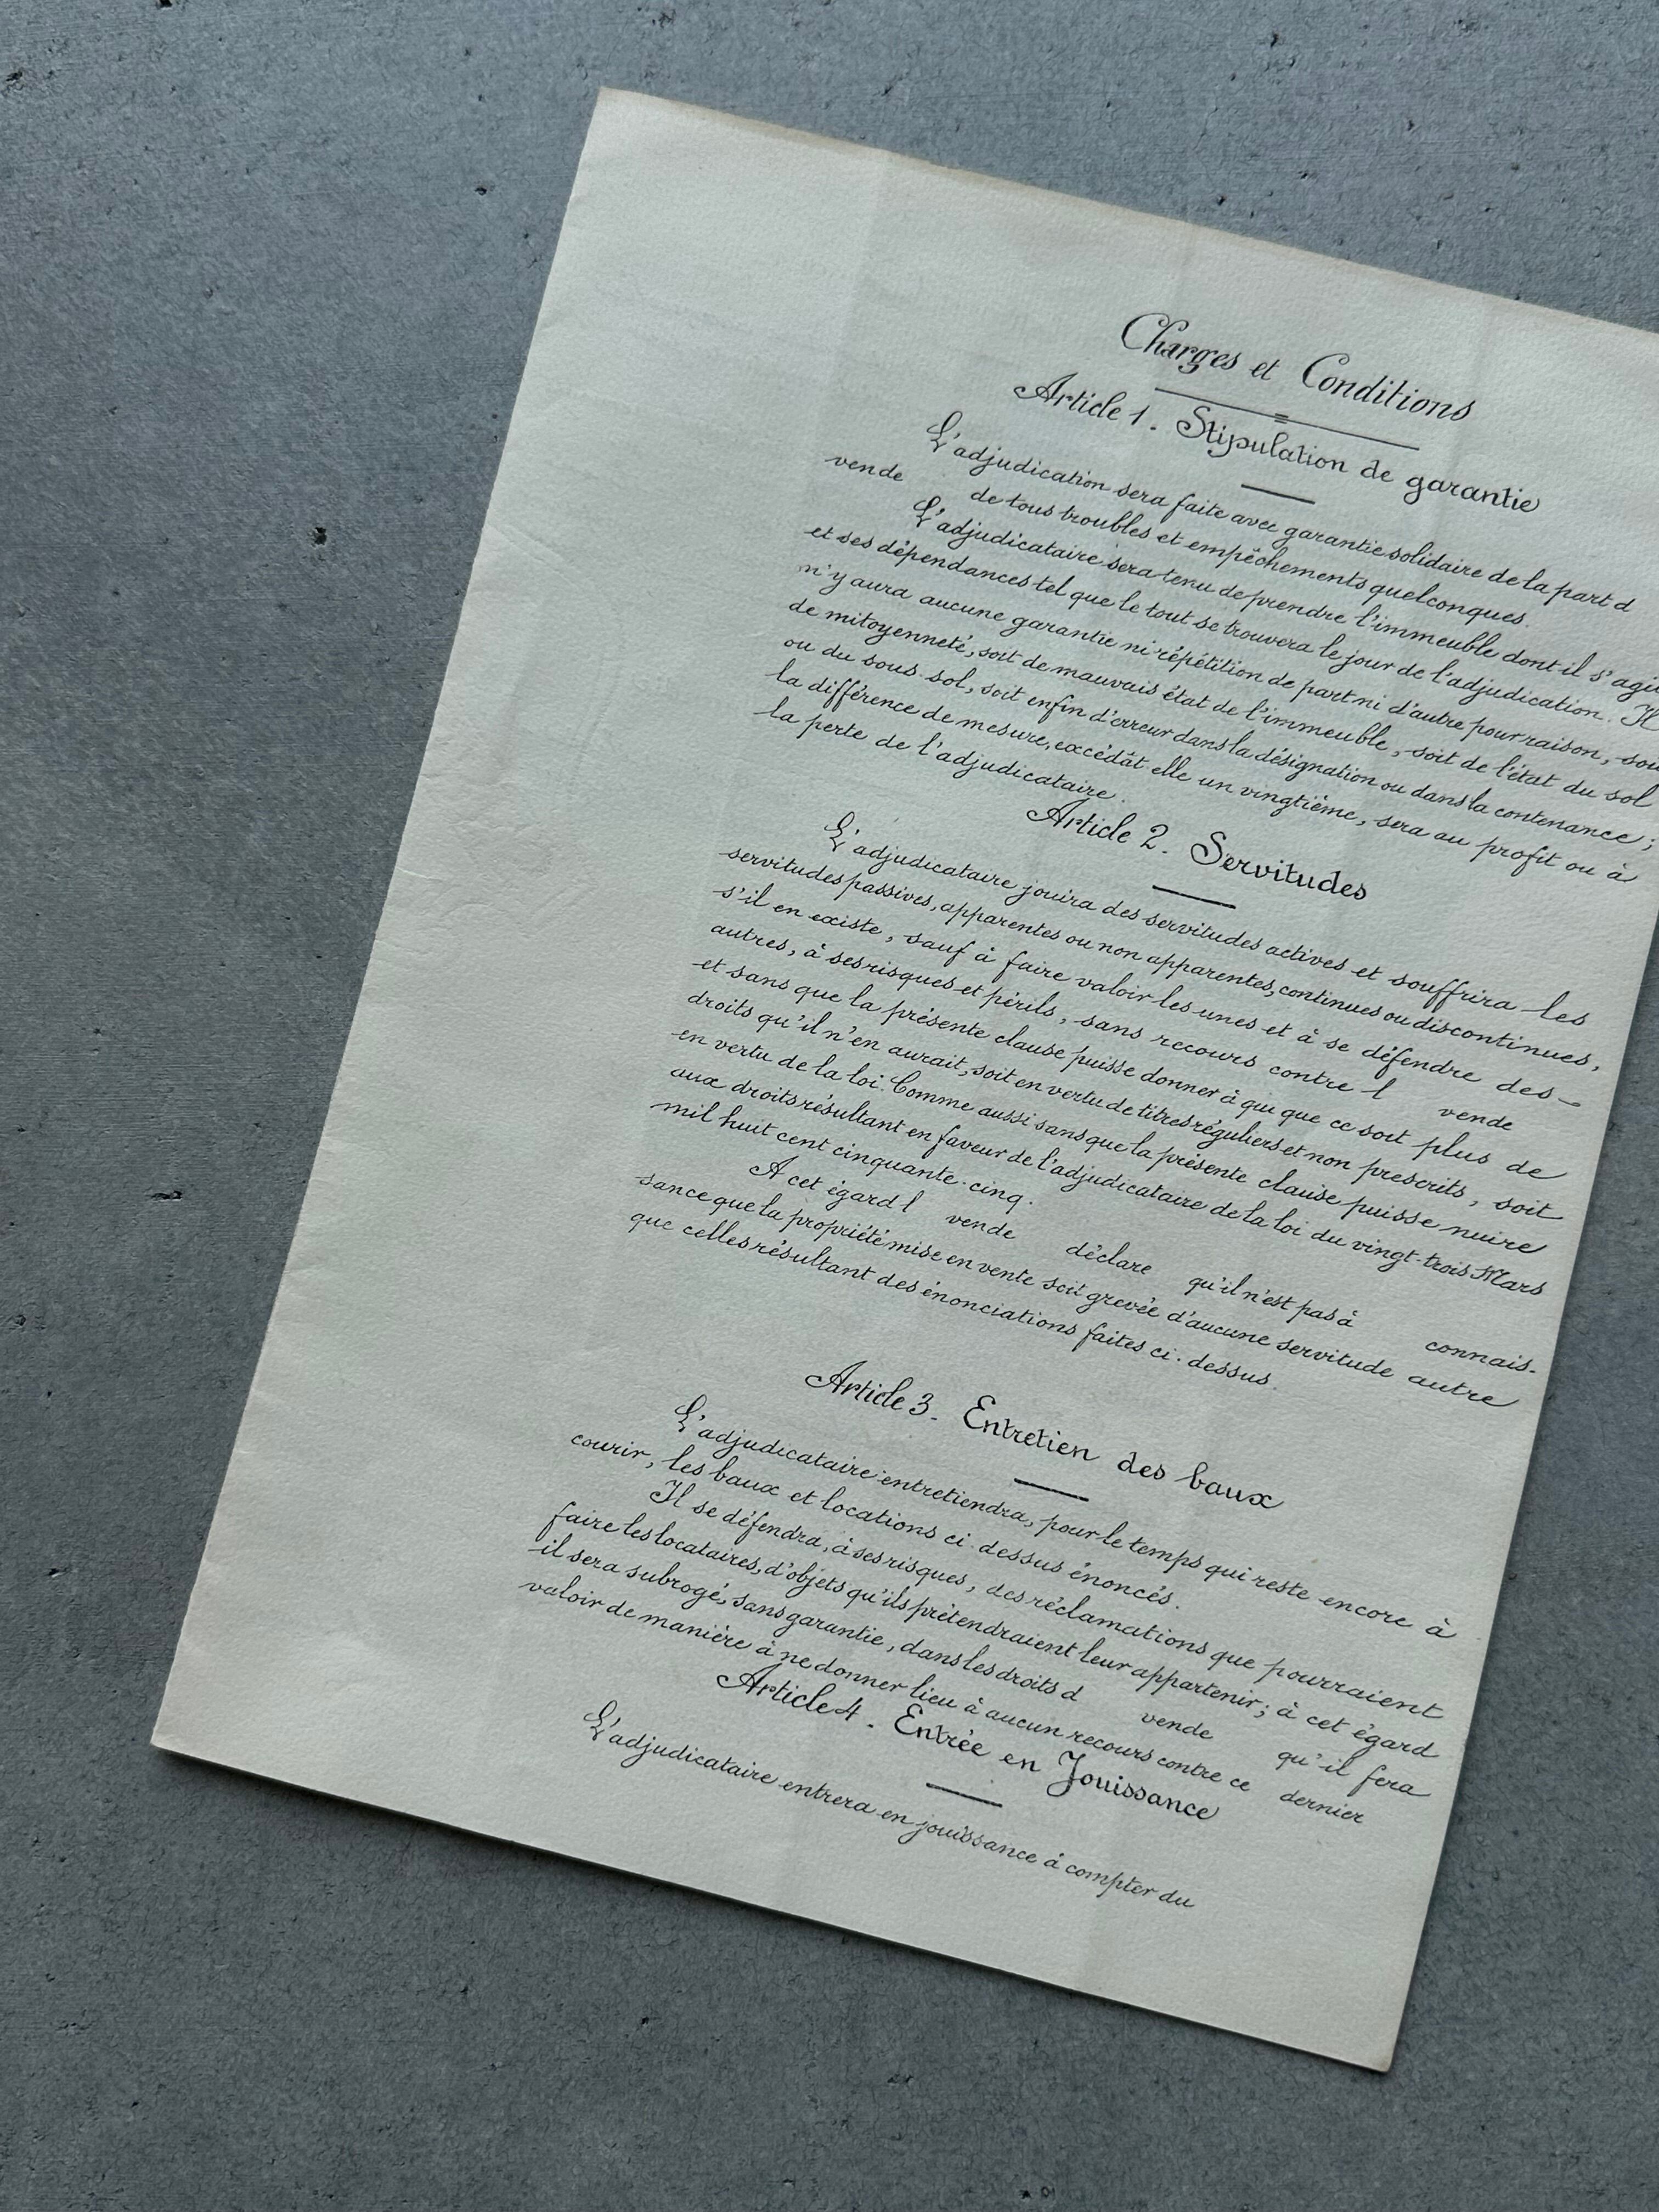 Charges et Conditions
Article 1. Stipulation de garantie
L'adjudication sera faite avec garantie solidaire de la part d
vende de tous troubles et empêchements quelconques.
L'adjudicataire sera tenu de prendre l'immeuble dont il s'agi
et ses dépendances tel que le tout se trouvera le jour de l'adjudication. Il
n'y aura aucune garantie ni répétition de part ni d'autre pour raison, soi
de mitoyenneté, soit de mauvais état de l'immeuble, soit de l'état du sol
ou du sous-sol, soit enfin d'erreur dans la désignation ou dans la contenance;
la différence de mesure, excédât-elle un vingtième, sera au profit ou à
la perte de l'adjudicataire.
Article 2. Servitudes
L'adjudicataire jouira des servitudes actives et souffrira les
servitudes passives, apparentes ou non apparentes, continues ou discontinues,
s'il en existe, sauf à faire valoir les unes et à se défendre des
autres, à ses risques et périls, sans recours contre l vende
et sans que la présente clause puisse donner à qui que ce soit plus de
droits qu'il n'en aurait, soit en vertu de titres réguliers et non prescrits, soit
en vertu de la loi. Comme aussi sans que la présente clause puisse nuire
aux droits résultant en faveur de l'adjudicataire de la loi du vingt-trois Mars
mil huit cent cinquante-cinq.
A cet égard l vende déclare qu'il n'est pas à connais-
sance que la propriété mise en vente soit grevée d'aucune servitude autre
que celles résultant des énonciations faites ci-dessus.
Article 3. Entretien des baux
L'adjudicataire entretiendra, pour le temps qui reste encore à
courir, les baux et locations ci-dessus énoncés.
Il se défendra, à ses risques, des réclamations que pourraient
faire les locataires, d'objets qu'ils prétendraient leur appartenir; à cet égard
il sera subrogé, sans garantie, dans les droits d vende qu'il fera
valoir de manière à ne donner lieu à aucun recours contre ce dernier
Article 4. Entrée en Jouissance
L'adjudicataire entrera en jouissance à compter du